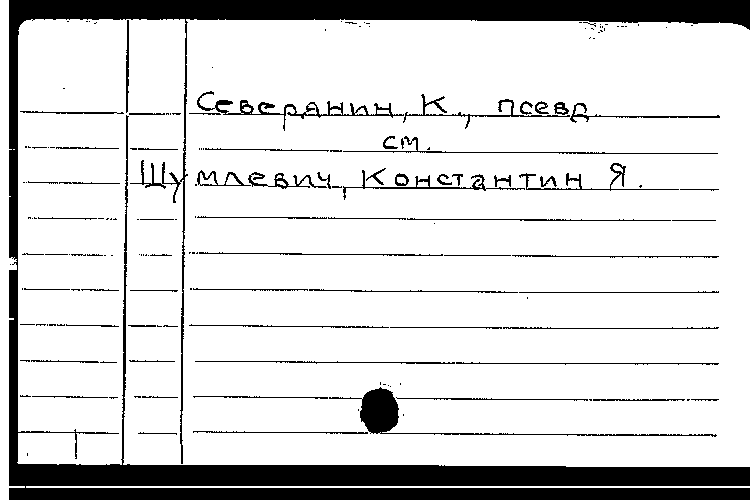 Северянин, К., псевд.
см.
Шумлевич, Константин Я.